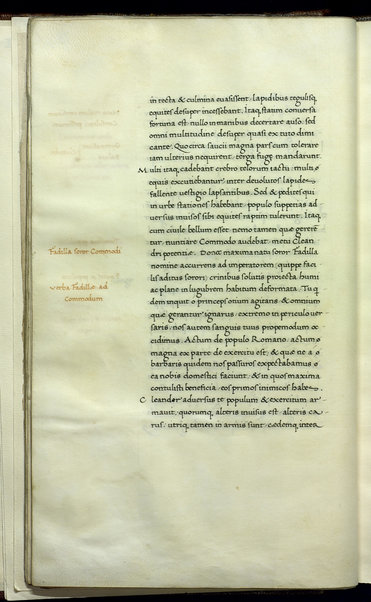 in tecta & culmina euasissent. lapidibus tegulisq
equites desuper incessebant. Itaq statum conuersa
fortuna est. nullo in manibus decertare auso. sed
omni multitudine desuper quasi ex tuto dimi
cante. Quo circa saucii magna pars cum tolerare
iam ulterius nequirent. terga fugę mandarunt.
Multi itaq cadebant crebro telorum iactu. multi
equis excutiebantur inter deuolutos lapides
fallente uestigio lapsantibus. Sed & pedites qui
in urbe stationes habebant. populo suppetias ad
uersus inuisos sibi equites raptim tulerunt. Itaq
cum ciuile bellum esset. nemo tamen quę gererē
tur. nuntiare Commodo audebat. metu Clean
dri potentię. Donec maxima natu soror Fadilla
nomine accurrens ad imperatorem. quippe faci
lis aditus sorori. crinibus solutis proiecta humi
ac plane in lugubrem habitum deformata. Tu qui
dem inquit o princeps otium agitans. & omnium
quę gerantur ignarus. extremo in periculo uer
saris. nos autem sanguis tuus propemodum oc
cidimus. Actum de populo Romano. actum
magna ex parte de exercitu est. & quę ne a
barbaris quidem nos passuros expectabamus.
ea nobis domestici faciunt. & in quos maxima
contulisti beneficia. eos primos inimicos habes.
Cleander aduersus te populum & exercitum ar
mauit. quorumq alteris inuisus est. alteris ca
rus. utriq tamen in armis sunt. cędemq inter
Fadilla soror Commodi
Verba Fadillę ad
Commodum